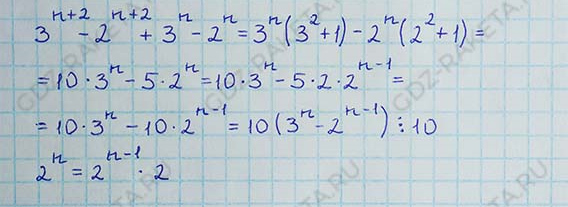 3ⁿ⁺² - 2ⁿ⁺² + 3ⁿ - 2ⁿ = 3ⁿ(3² + 1) - 2ⁿ(2² + 1) =
= 10 · 3ⁿ - 5 · 2ⁿ = 10 · 3ⁿ - 5 · 2 · 2ⁿ⁻¹ =
= 10 · 3ⁿ - 10 · 2ⁿ⁻¹ = 10(3ⁿ - 2ⁿ⁻¹) ⋮ 10
2ⁿ = 2ⁿ⁻¹ · 2
GDZ-RAKETA.RU